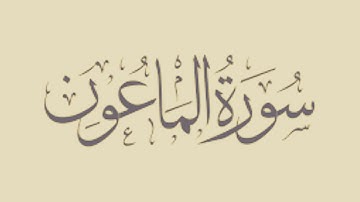 سُورَةُ المَاعُون